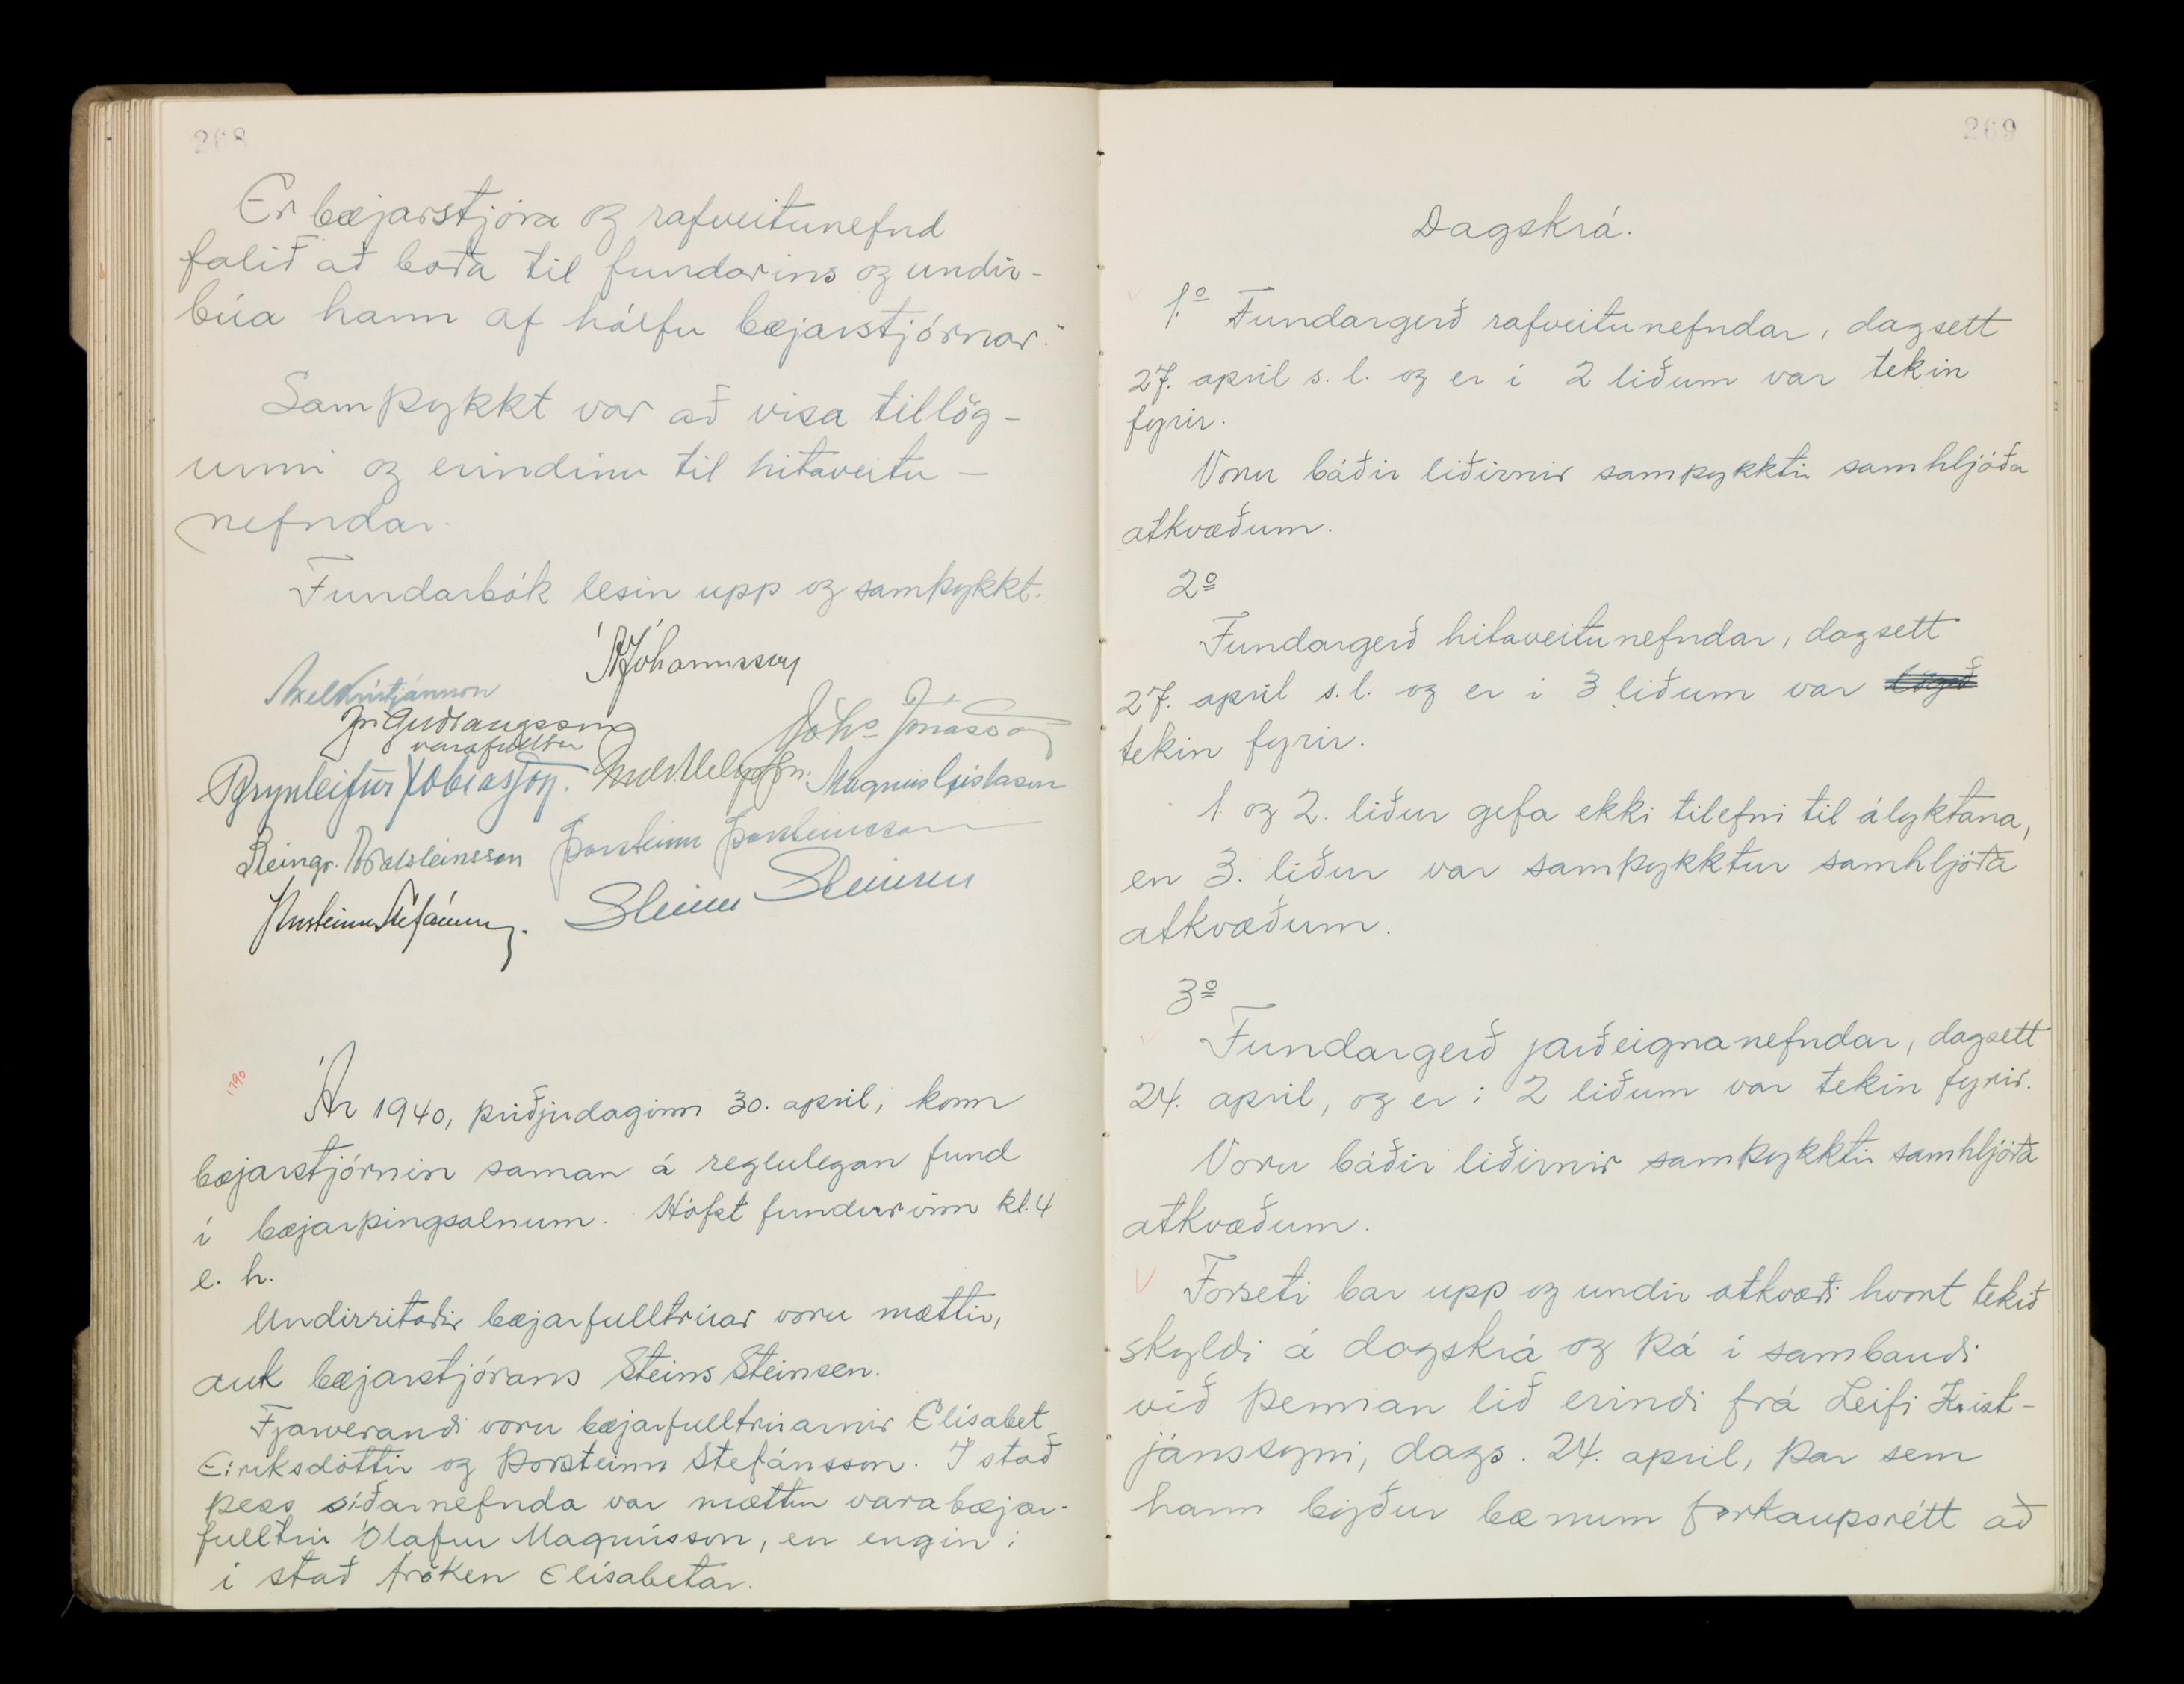 268
Er bæjarstjóra og rafveitunefnd
falið að boða til fundarins og undir-
búa hann af hálfu bæjarstjórnar."
Samþykkt var að visa tillög-
unni og erindinu til hitaveitu-
nefndar.
Fundarbók lesin upp og samþykkt.
Á Jóhannsson
Axel Kristjánsson
Jn Guðlaugsson
varafulltrúi
Jóhs Jónasson
Brynleifur Tobiasson.
Indr. Helgason.
Magnús Gíslason
Steingr. Aðalsteinsson
Þorsteinn Þorsteinsson
Arnsteinn Stefánsson.
Steinn Steinsen
1790
Ár 1940, þriðjudaginn 30. april, kom
bæjarstjórnin saman á reglulegan fund
í bæjarþingsalnum. Hófst fundurinn kl. 4
e. h.
Undirritaðir bæjarfulltrúar voru mættir,
auk bæjarstjórans Steins Steinsen.
Fjarverandi voru bæjarfulltrúarnir Elísabet
Eiríksdóttir og Þorsteinn Stefánsson. Í stað
þess síðarnefnda var mættur varabæjar-
fulltrúi Ólafur Magnússon, en engin í
í stað fröken Elísabetar.
269
Dagskrá.
1.o Fundargerð rafveitunefndar, dagsett
27. april s. l. og er í 2 liðum var tekin
fyrir.
Voru báðir liðirnir samþykktir samhljóða
atkvæðum.
2o
Fundargerð hitaveitunefndar, dagsett
27. april s. l. og er í 3 liðum var
tekin fyrir.
1. og 2. liður gefa ekki tilefni til ályktana,
en 3. liður var samþykktur samhljóða
atkvæðum.
3o
Fundargerð jarðeignanefndar, dagsett
24. april, og er í 2 liðum var tekin fyrir.
Voru báðir liðirnir samþykktir samhljóða
atkvæðum.
Forseti bar upp og undir atkvæði hvort tekið
skyldi á dagskrá og þá í sambandi
við þennan lið erindi frá Leifi Krist-
jánssyni, dags. 24. april, þar sem
hann býður bænum forkaupsrétt að